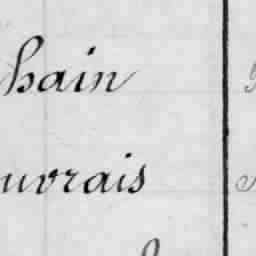 hain
uvrais